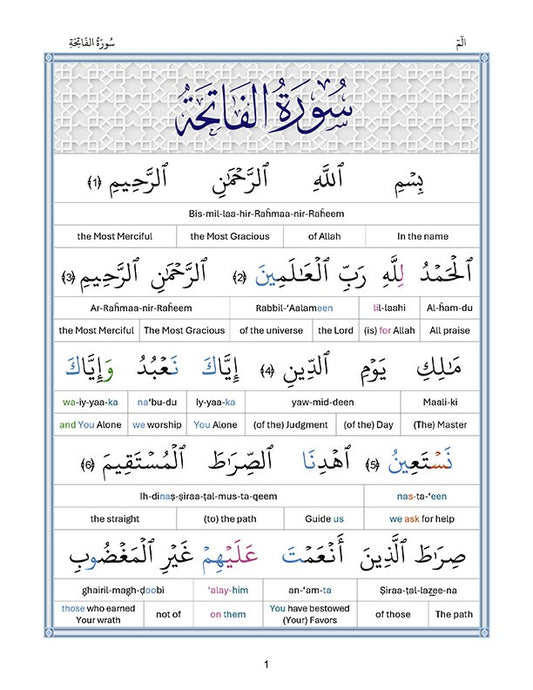 الٓمٓ سُورَةُ الفَاتِحَةِ
سُورَةُ الفَاتِحَةِ
بِسْمِ ٱللَّهِ ٱلرَّحْمَٰنِ ٱلرَّحِيمِ ﴿١﴾
Bis-mil-laa-hir-Raĥmaa-nir-Raĥeem
In the name of Allah the Most Gracious the Most Merciful
ٱلْحَمْدُ لِلَّهِ رَبِّ ٱلْعَٰلَمِينَ ﴿٢﴾ ٱلرَّحْمَٰنِ ٱلرَّحِيمِ ﴿٣﴾
Al-ĥam-du lil-laahi Rabbil-‘Aalameen Ar-Raĥmaa-nir-Raĥeem
All praise (is) for Allah the Lord of the universe The Most Gracious the Most Merciful
مَٰلِكِ يَوْمِ ٱلدِّينِ ﴿٤﴾ إِيَّاكَ نَعْبُدُ وَإِيَّاكَ
Maali-ki yaw-mid-deen Iy-yaa-ka na‘bu-du wa-iy-yaa-ka
(The) Master (of the) Day (of the) Judgment You Alone we worship and You Alone
نَسْتَعِينُ ﴿٥﴾ ٱهْدِنَا ٱلصِّرَٰطَ ٱلْمُسْتَقِيمَ ﴿٦﴾
nas-ta-‘een Ih-dinaṣ-ṣiraa-ṭal-mus-ta-qeem
we ask for help Guide us (to) the path the straight
صِرَٰطَ ٱلَّذِينَ أَنْعَمْتَ عَلَيْهِمْ غَيْرِ ٱلْمَغْضُوبِ
Ṣiraa-ṭal-lazee-na an-‘am-ta ‘alay-him ghairil-magh-ḍoobi
The path of those You have bestowed (Your) Favors on them not of those who earned Your wrath
1